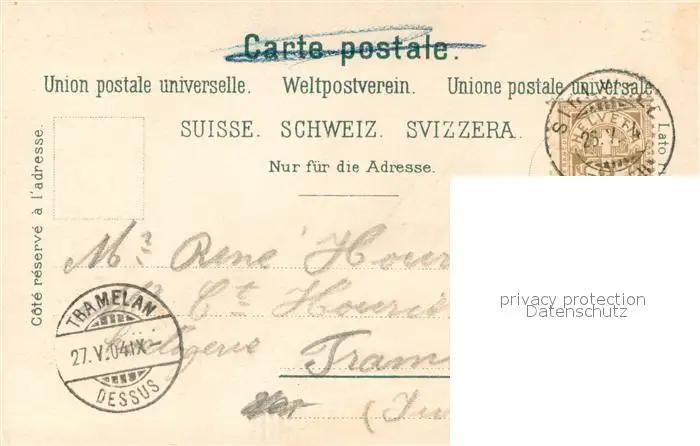 Carte postale.
Union postale universelle. Weltpostverein. Unione postale universale.
SUISSE. SCHWEIZ. SVIZZERA.
Nur für die Adresse.
Côté réservé à l'adresse.
Lato
26.V.
Mr René Hour
Ct Hourie
Tram
(Ju
TRAMELAN
27.V.04 IX-
DESSUS
privacy protection
Datenschutz